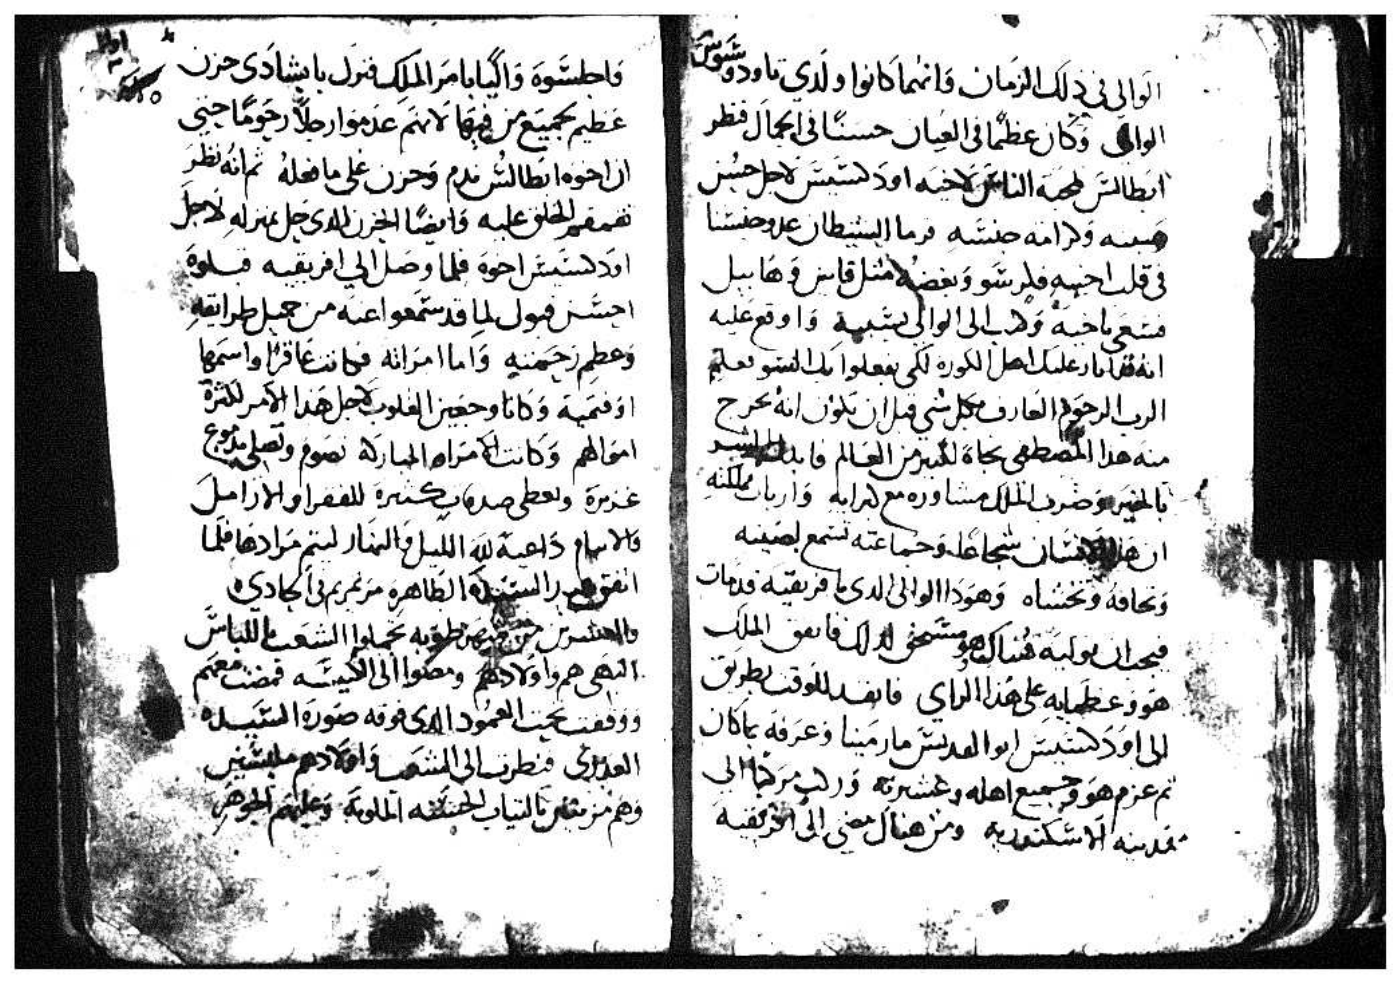 الوالي في ذلك الزمان وانهما كانوا ولدي تاودوسيوس
الوالي وكان عظمًا في العيان حسنًا في الجمال فنظر
انطاليس لمحبة الناس لاخيه اودكسيس لاجل حسن
صيته وكرامة جنسه فرما الشيطان عدو جنسنا
في قلب اخيه فلم شر وبغضه مثل قاين وهابيل
فسعى باخيه وكتب الى الوالي بسببه واوقع عليه
انه قد ثار عليك اهل الكوره لكي يفعلوا بك السو تعلم
الرب الرحوم العارف بكل شي قبل ان يكون انه يخرج
منه هذا المصطفى نجاة لكثير من العالم فابدل الشر
بالخير وضرب الملك مشاوره مع كبرايه وارباب مملكته
ان هذا الانسان شجاعا وجماعته تسمع لصيته
وتخافه وتخشاه وهوذا الوالي الذي بافريقية قد مات
فيجب ان نوليه هناك وهو مستحق لذلك فاتفق الملك
هو وعظمايه على هذا الراي فانفذ للوقت بطريق
الى اودكسيس ابو القديس مارمينا وعرفه بما كان
ثم عزم هو وجميع اهله وعشيرته وركب مركبا الى
مدينة الاسكندرية ومن هناك مضى الى افريقية
فاجلسوه واليا بامر الملك فنزل بابيشادي حزن
عظيم بجميع من فيها لانهم عدموا رجلًا رحومًا حتى
ان اخوه انطاليس ندم وحزن على ما فعله ثم انه نظر
تقمقم الخلق عليه وايضًا الحزن الذي حل بمنزله لاجل
اودكسيس اخوه فلما وصل الى افريقيه قبلوه
احسن قبول لما قد سمعوا عنه من جميل طرايقه
وعظم رحمته واما امراته فكانت عاقرًا واسمها
اوفمية وكانا وجعين القلوب لاجل هذا الامر لكثرة
اموالهم وكانت الامراه المباركة تصوم وتصلي بدموع
غزيرة وتعطي صدقات كثيرة للفقرا والارامل
والايتام داعية لله الليل والنهار ليتم مرادها فلما
اتفق عيد السيدة الطاهرة مرتمريم في الحادي
والعشرين من طوبه تجملوا الشعب باللباس
البهي هم واولادهم ومضوا الى الكنيسة فمضت معهم
ووقفت تحت العمود الذي فوقه صورة السيده
العذرى فنظرت الى الشعب واولادهم ملبسين
وهم مزينين بالثياب الحسنه الملونة وعليهم الجوهر